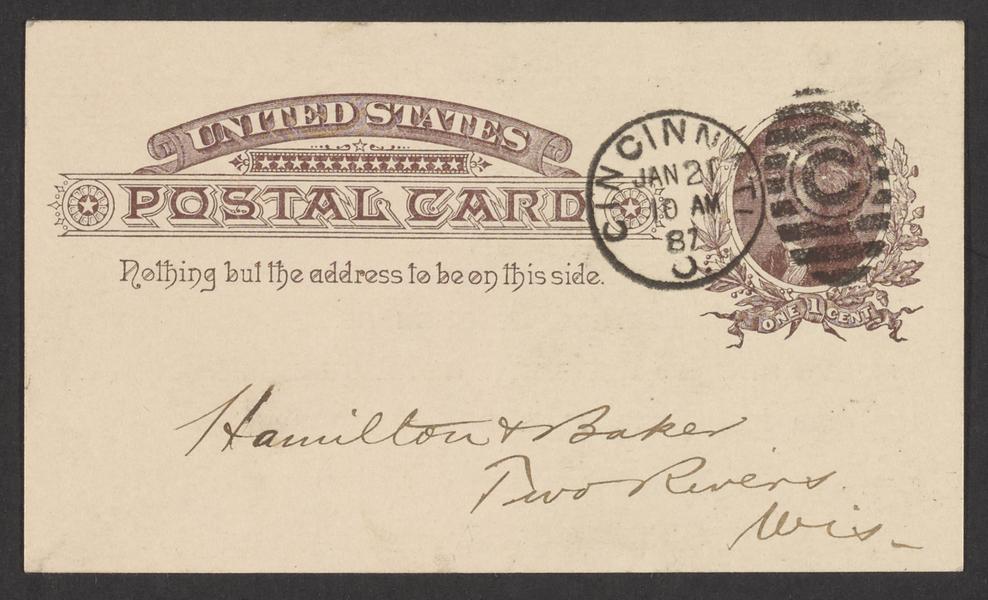 UNITED STATES
POSTAL CARD
Nothing but the address to be on this side.
CINCINNATI
JAN 21
10 AM
87
O.
C
ONE 1 CENT
Hamilton & Baker
Two Rivers.
Wis-